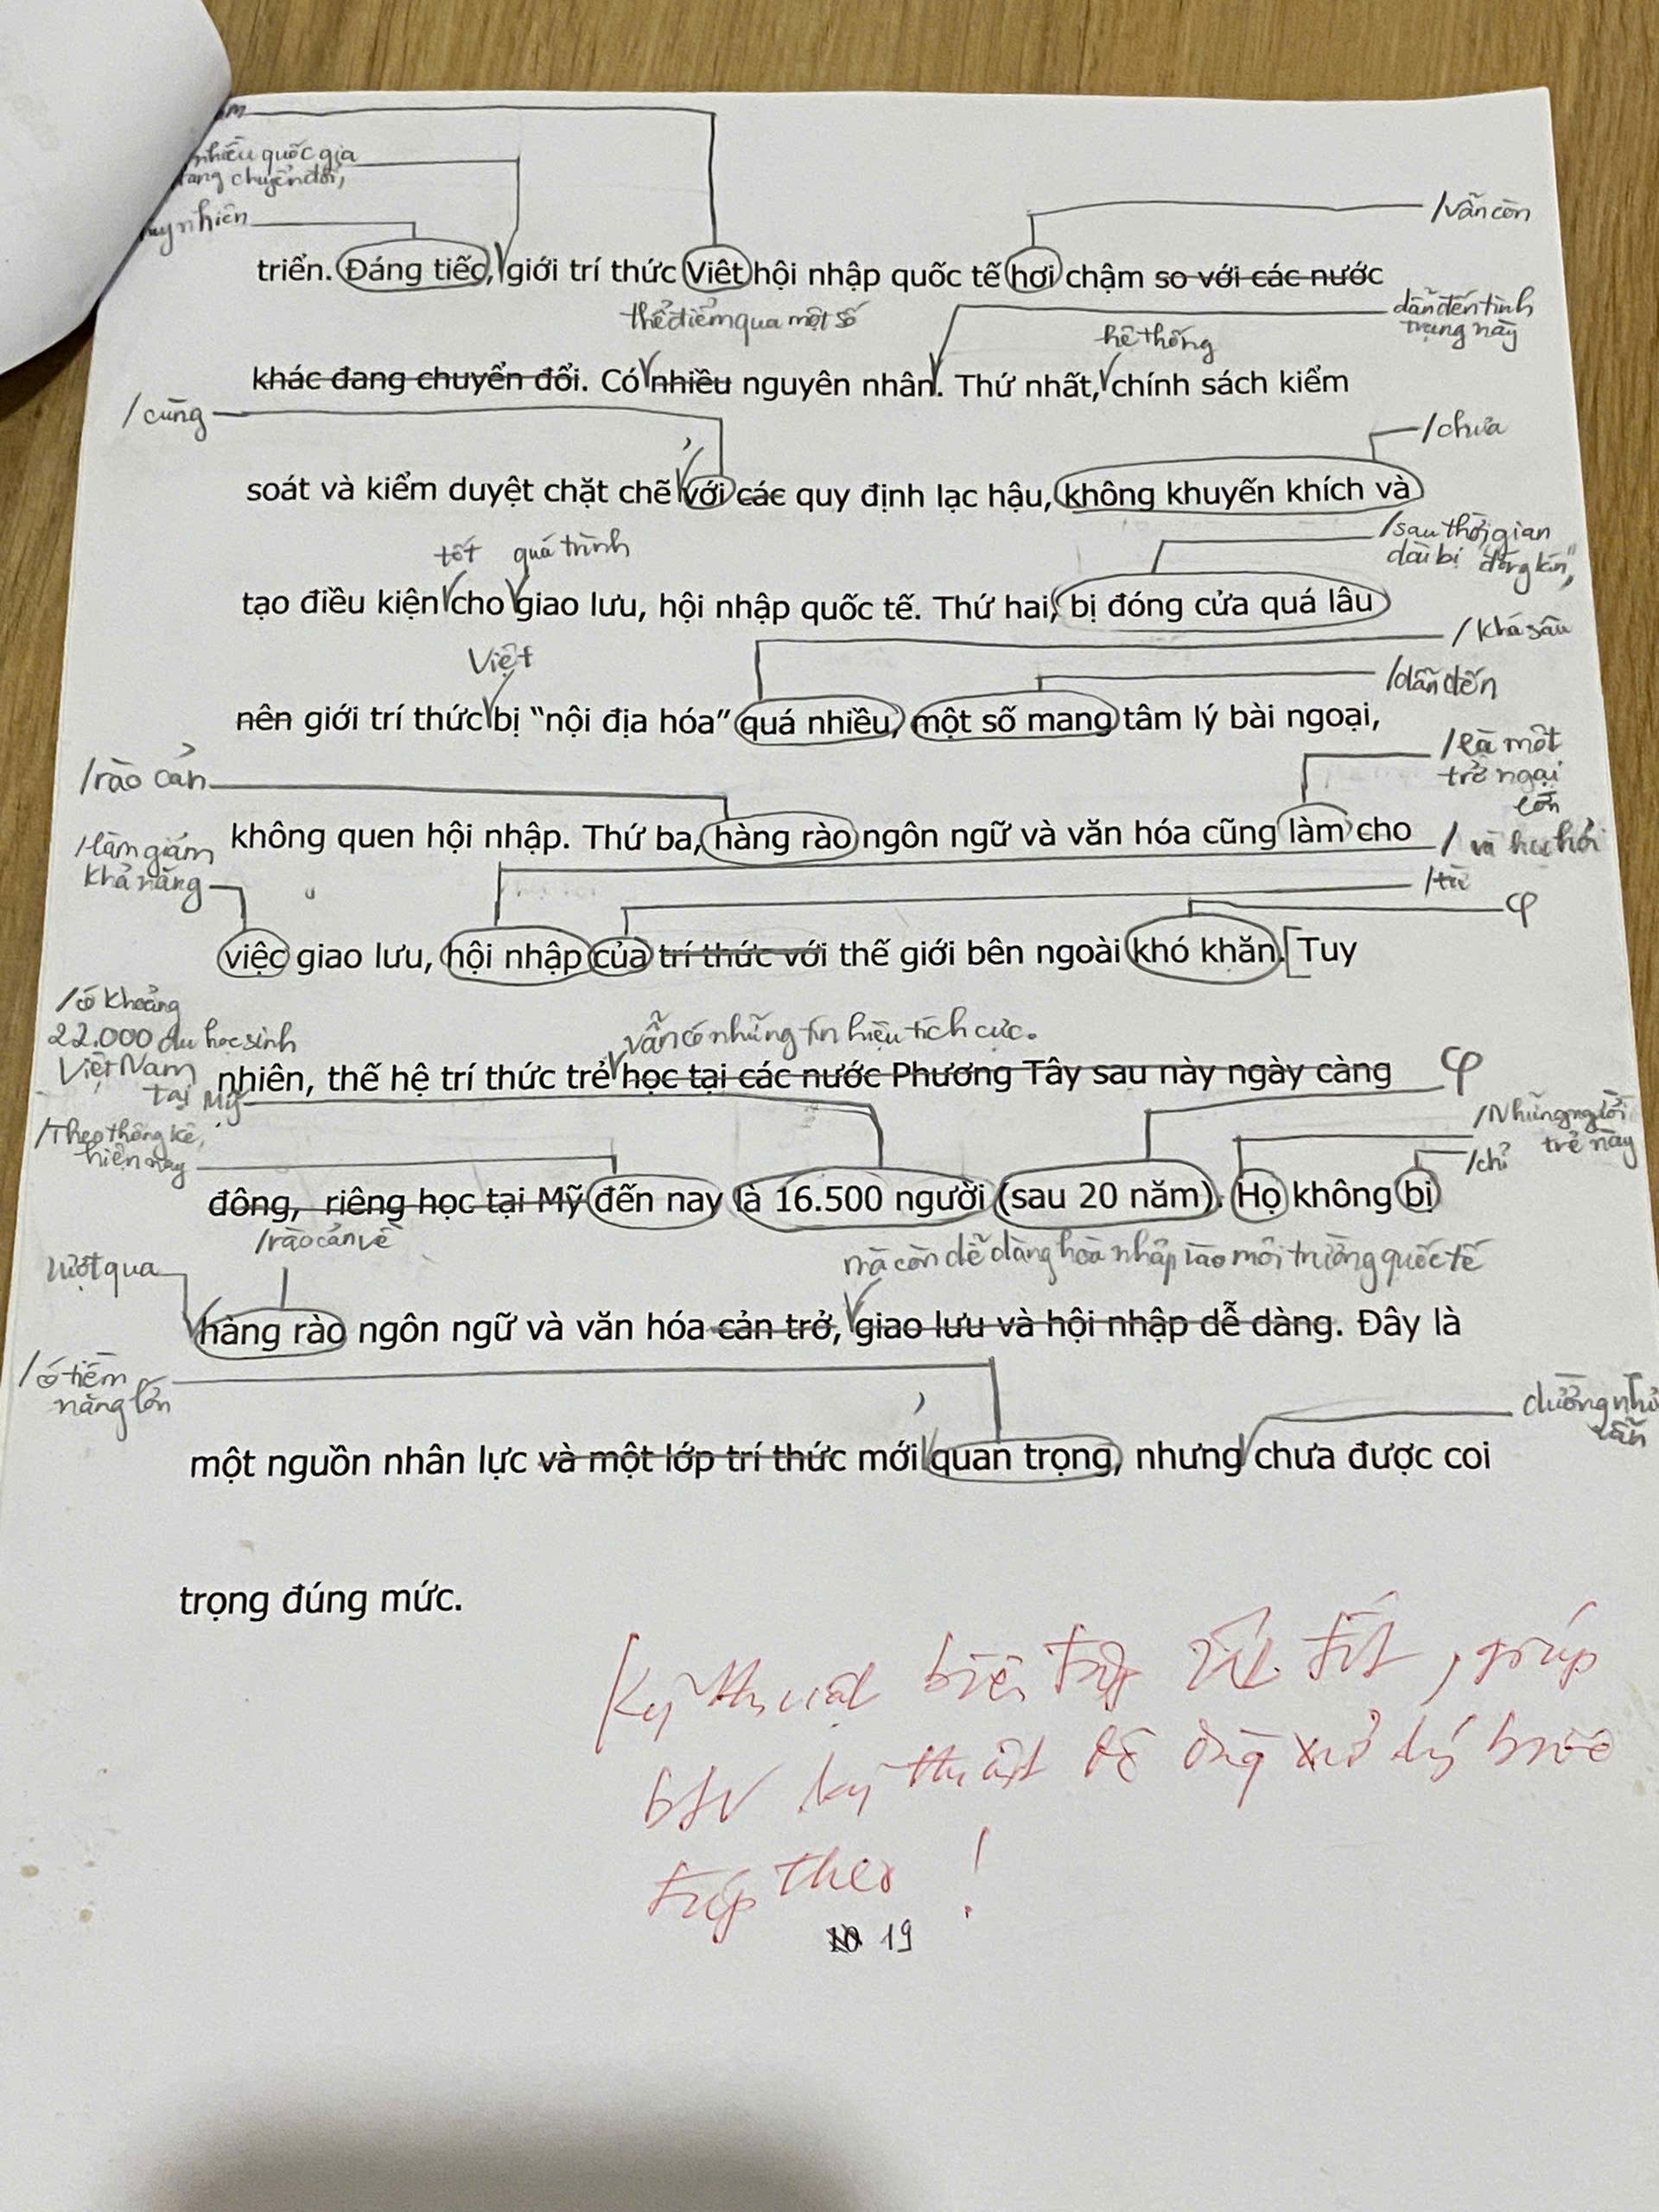 nhiều quốc gia
chuyển đổi,
nhiên
/vẫn còn
triển. Đáng tiếc, giới trí thức Việt hội nhập quốc tế hơi chậm so với các nước
thể điểm qua một số
hệ thống
dẫn đến tình
trạng này
khác đang chuyển đổi. Có nhiều nguyên nhân. Thứ nhất, chính sách kiểm
/cùng
,
/chưa
soát và kiểm duyệt chặt chẽ với các quy định lạc hậu, không khuyến khích và
tốt quá trình
/sau thời gian
dài bị "đóng kín",
tạo điều kiện cho giao lưu, hội nhập quốc tế. Thứ hai, bị đóng cửa quá lâu
Việt
/khá sâu
/dẫn đến
nên giới trí thức bị “nội địa hóa” quá nhiều, một số mang tâm lý bài ngoại,
/rào cản
/là một
trở ngại
lớn
không quen hội nhập. Thứ ba, hàng rào ngôn ngữ và văn hóa cũng làm cho
/làm giảm
khả năng
/và học hỏi
/từ
việc giao lưu, hội nhập của trí thức với thế giới bên ngoài khó khăn. Tuy
/có khoảng
22.000 du học sinh
Việt Nam
tại Mỹ
vẫn có những tín hiệu tích cực.
nhiên, thế hệ trí thức trẻ học tại các nước Phương Tây sau này ngày càng
/Theo thống kê,
hiện nay
/Những người
trẻ này
/chỉ
đông, riêng học tại Mỹ đến nay là 16.500 người (sau 20 năm). Họ không bị
/rào cản về
vượt qua
mà còn dễ dàng hoà nhập vào môi trường quốc tế
hàng rào ngôn ngữ và văn hóa cản trở, giao lưu và hội nhập dễ dàng. Đây là
/có tiềm
năng lớn
,
dường như
vẫn
một nguồn nhân lực và một lớp trí thức mới quan trọng, nhưng chưa được coi
trọng đúng mức.
Kỹ thuật biên tập rất tốt, giúp
btv kỹ thuật dễ dàng xử lý bước
tiếp theo !
19